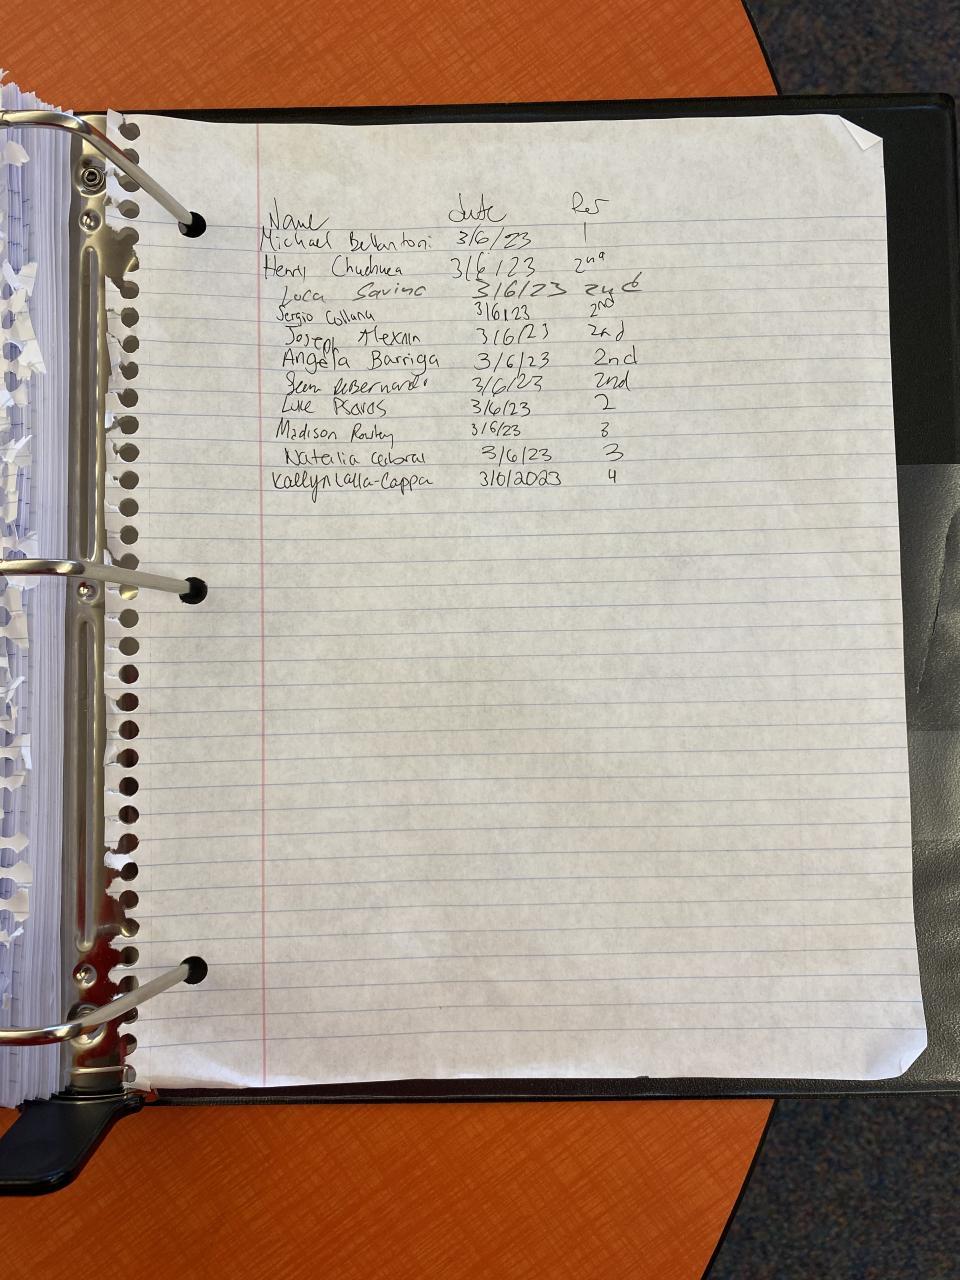 Name date Per
Michael Bellantoni 3/6/23 1
Henry 3/6/23 2nd
Luca Savino 3/6/23 2nd
Sergio Collana 3/6/23 2nd
Joseph 3/6/23 2nd
Angela Barriga 3/6/23 2nd
DeBernardi 3/6/23 2nd
Luke Psaros 3/6/23 2
Madison 3/6/23 3
Natalia 3/6/23 3
Kaitlyn Lalla-Cappa 3/6/2023 4